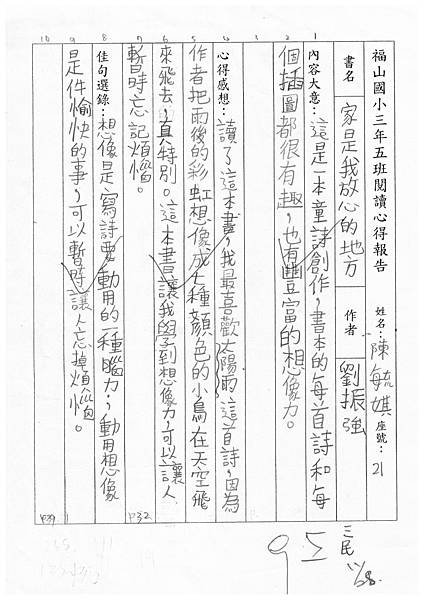 福山國小三年五班閱讀心得報告
姓名：陳毓娸 座號：21
書名 家是我放心的地方 作者 劉振強
內容大意：這是一本童詩創作，書本的每首詩和每
個插圖都很有趣，也有豐富的想像力。
心得感想：讀了這本書，我最喜歡太陽雨這首詩，因為
作者把雨後的彩虹想像成七種顏色的小鳥在天空飛
來飛去，真特別。這本書讓我學到想像力，可以讓人
暫時忘記煩惱。
P32
佳句選錄：想像是寫詩要動用的一種腦力，動用想像
是件愉快的事，可以暫時讓人忘掉煩惱。
P39
1
2
3
4
5
6
7
8
9
10
95
三民
11/28